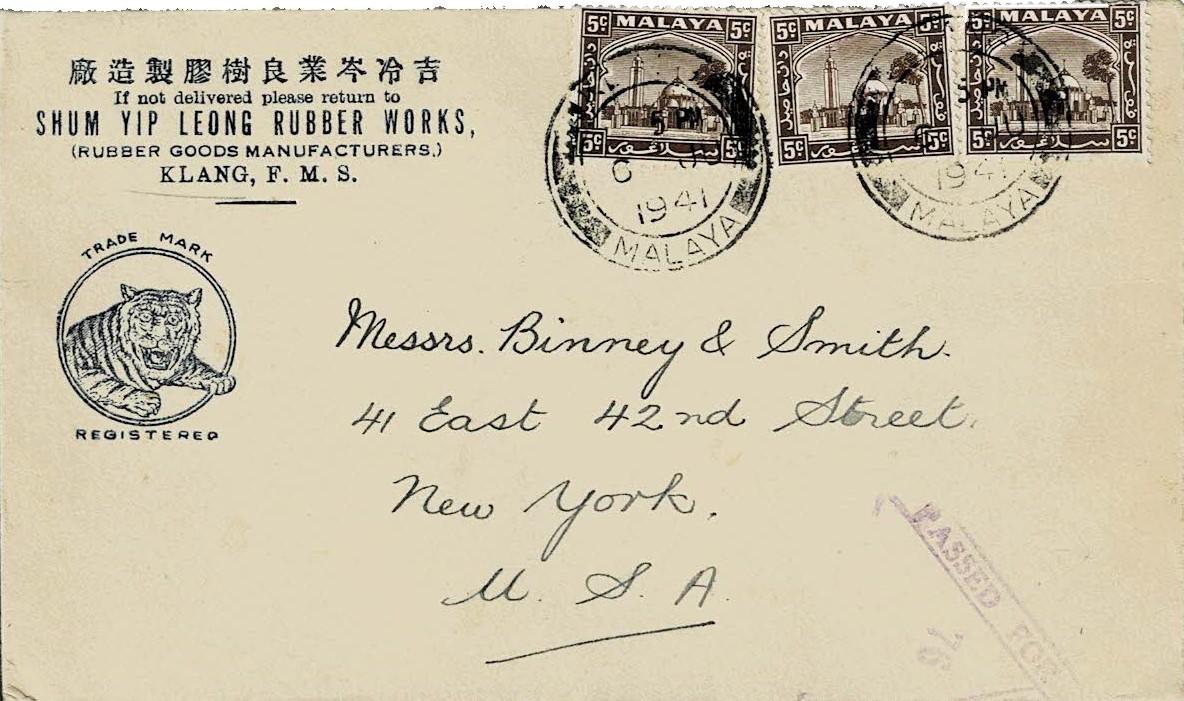 吉冷岑業良樹膠製造廠
If not delivered please return to
SHUM YIP LEONG RUBBER WORKS,
(RUBBER GOODS MANUFACTURERS.)
KLANG, F. M. S.
TRADE MARK
REGISTERED
5c MALAYA 5c
5c سلاڠور 5c
5c MALAYA 5c
5c سلاڠور 5c
5c MALAYA 5c
5c سلاڠور 5c
5 PM
1941
MALAYA
PM
1941
MALAYA
Messrs. Binney & Smith.
41 East 42nd Street,
New York.
U. S. A.
PASSED FOR
76